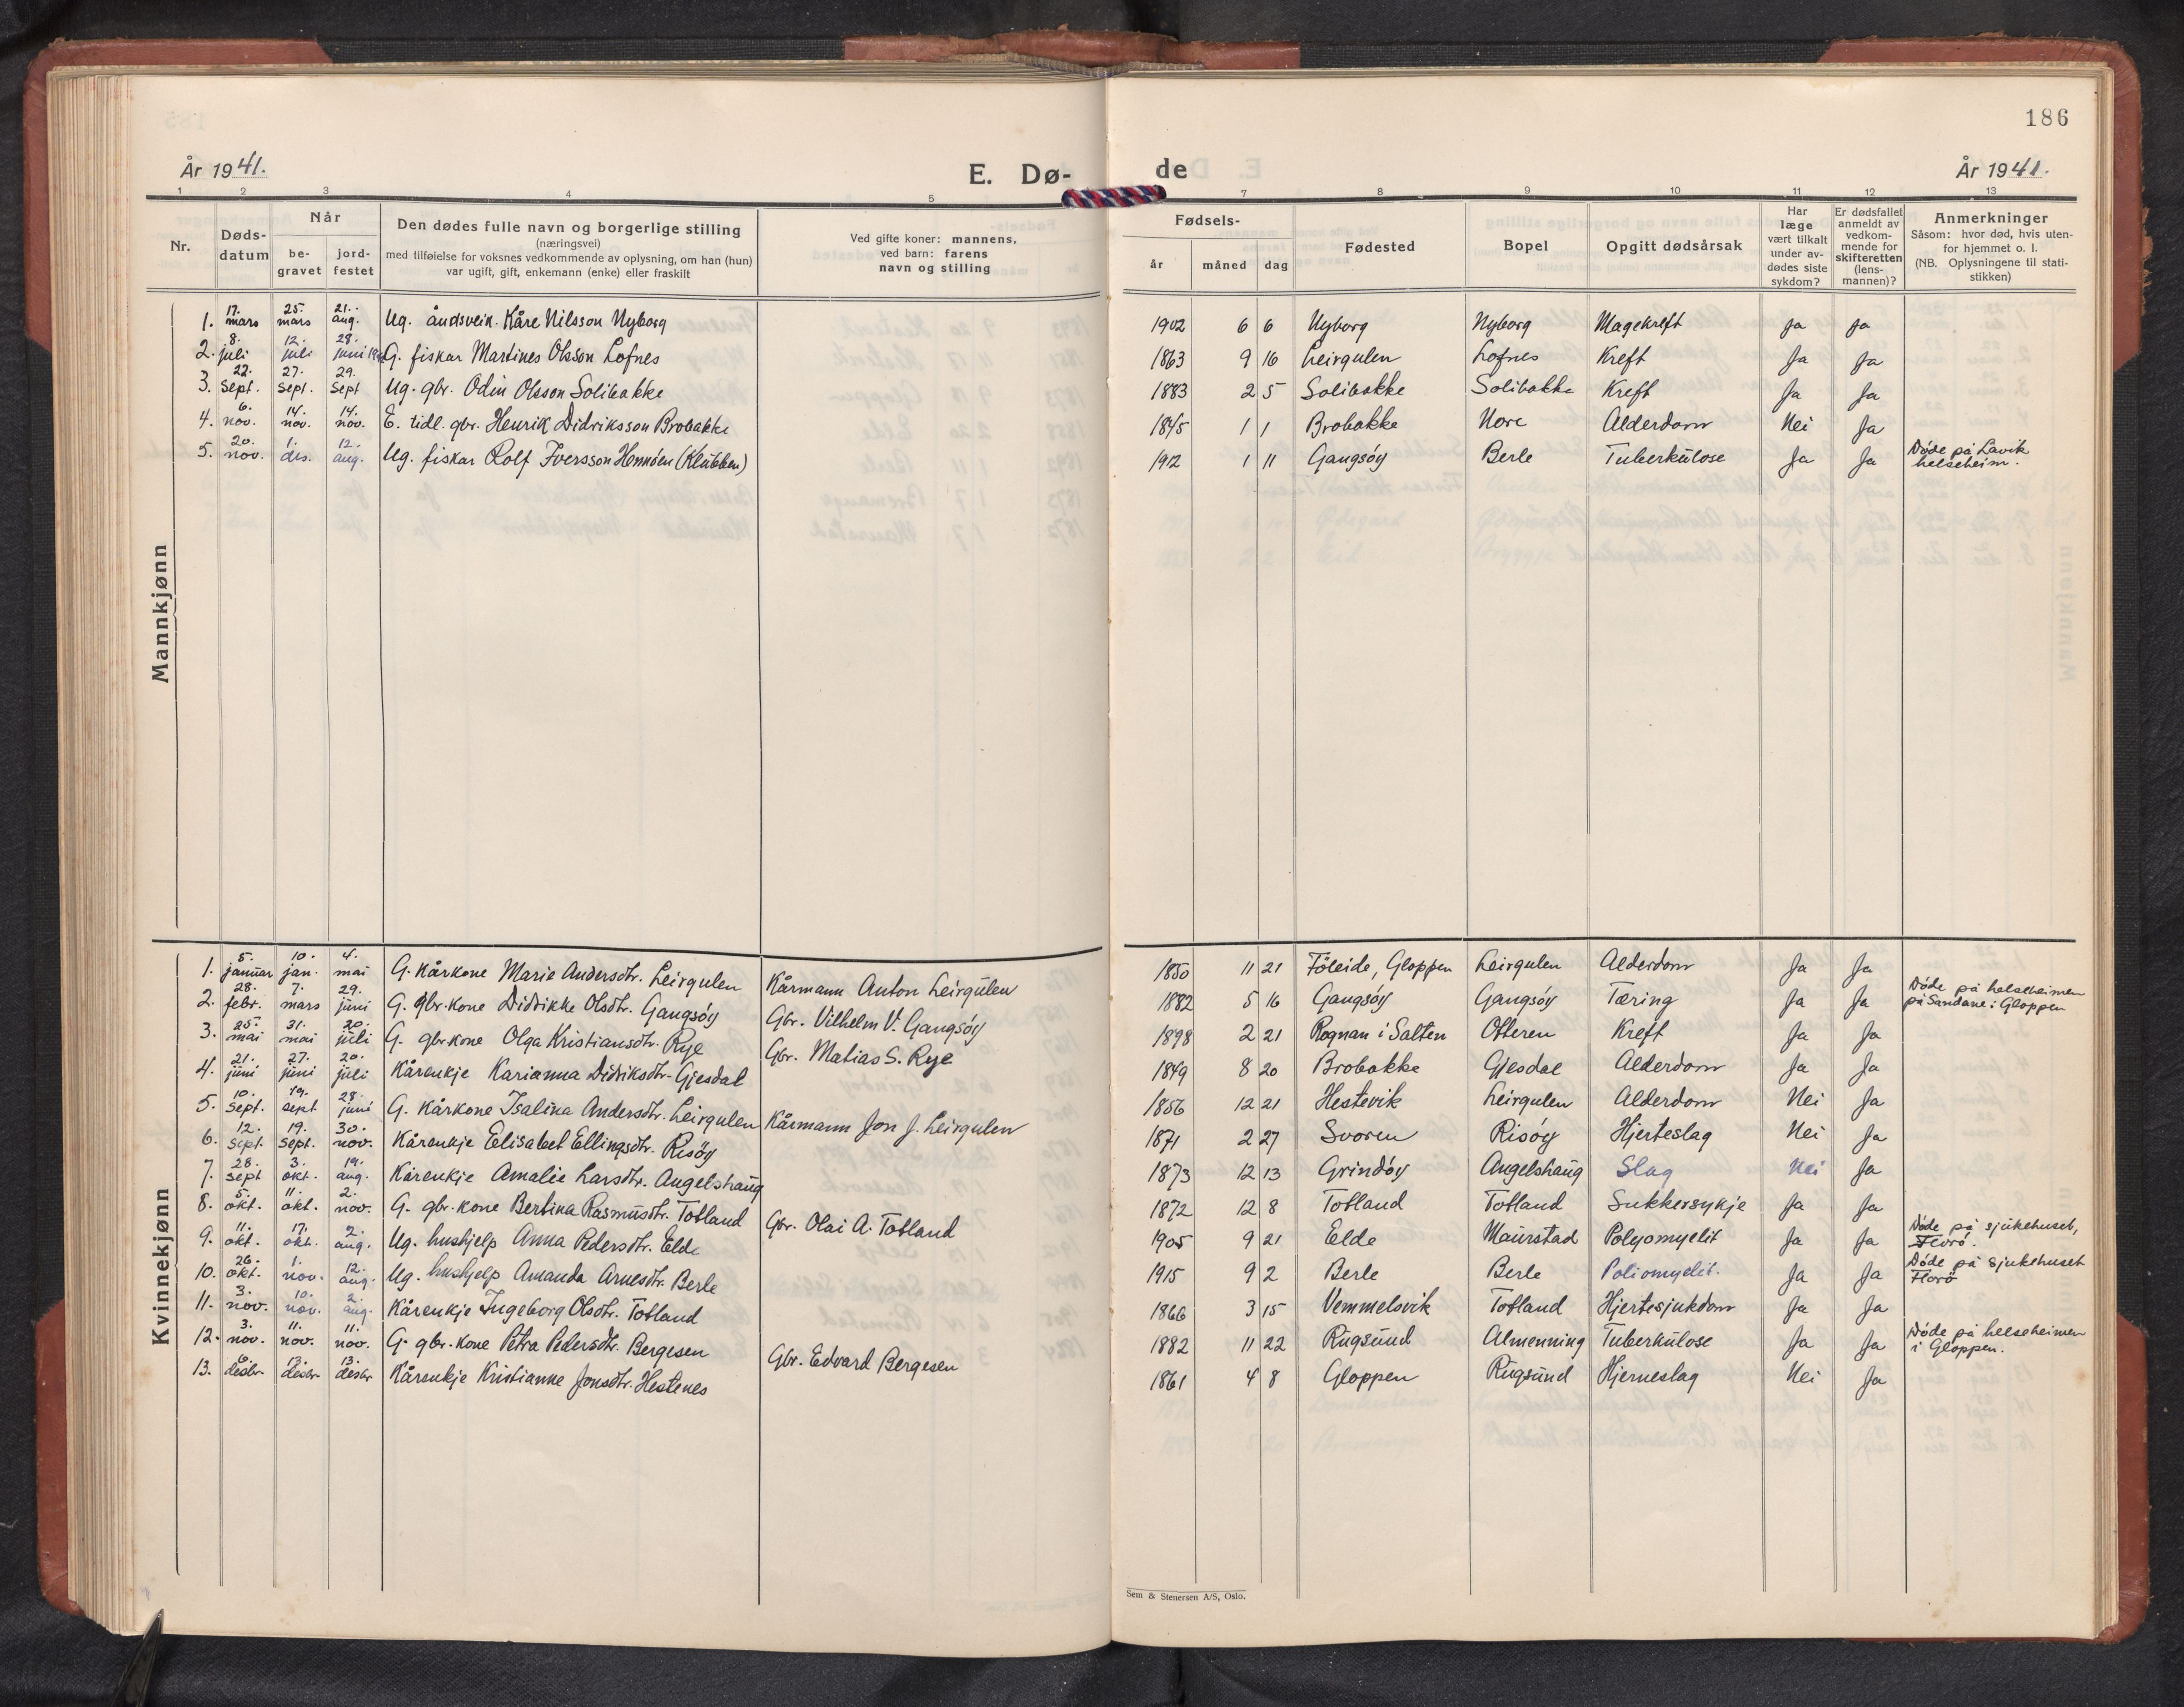 186
År 1941.
E. Dø-
de
År 1941.
1 2 3 4 5 7 8 9 10 11 12 13
Nr.
Døds-
datum
Når
be-
gravet
jord-
festet
Den dødes fulle navn og borgerlige stilling
(næringsvei)
med tilføielse for voksnes vedkommende av oplysning, om han (hun)
var ugift, gift, enkemann (enke) eller fraskilt
Ved gifte koner: mannens,
ved barn: farens
navn og stilling
Fødsels-
år måned dag
Fødested
Bopel
Opgitt dødsårsak
Har
læge
vært tilkalt
under av-
dødes siste
sykdom?
Er dødsfallet
anmeldt av
vedkom-
mende for
skifteretten
(lens-
mannen)?
Anmerkninger
Såsom: hvor død, hvis uten-
for hjemmet o. l.
(NB. Oplysningene til stati-
stikken)
Mannkjønn
1. 17. mars 25. mars 21. aug. Ug. åndsveik. Kåre Nilsson Nyborg 1902 6 6 Nyborg Nyborg Magekreft Ja Ja
2. 8. juli 12. juli 28. juni G. fiskar Martines Olsson Lofnes 1863 9 16 Leirgulen Lofnes Kreft Ja Ja
3. 22. sept. 27. sept. 29. sept Ug. gbr. Odin Olsson Solibakke 1883 2 5 Solibakke Solibakke Kreft Ja Ja
4. 6. nov. 14. nov. 14. nov. E. tidl. gbr. Henrik Didriksson Brobakke 1845 1 1 Brobakke Nore Alderdom Nei Ja
5. 20. nov. 1. des. 12. aug. Ug. fiskar Rolf Iversson Hennøen (Klubben) 1912 1 11 Gangsøy Berle Tuberkulose Ja Ja Døde på Lavik
helseheim.
Kvinnekjønn
1. 5. januar 10. jan. 4. mai G. Kårkone Marie Andersdtr. Leirgulen Kårmann Anton Leirgulen 1850 11 21 Føleide, Gloppen Leirgulen Alderdom Ja Ja
2. 28. febr. 7. mars 29. juni G. gbr. kone Didrikke Olsdtr. Gangsøy Gbr. Vilhelm V. Gangsøy 1882 5 16 Gangsøy Gangsøy Tæring Ja Ja Døde på helseheimen
på Sandane i Gloppen
3. 25. mai 31. mai 20. juli G. gbr. kone Olga Kristiansdtr. Rye Gbr. Matias S. Rye 1898 2 21 Rognan i Salten Otteren Kreft Ja Ja
4. 21. juni 27. juni 20. juli Kårenkje Karianna Didriksdtr. Gjesdal 1849 8 20 Brobakke Gjesdal Alderdom Ja Ja
5. 10. sept. 19. sept 28. juni G. Kårkone Isalina Andersdtr. Leirgulen Kårmann Jon J. Leirgulen 1856 12 21 Hestevik Leirgulen Alderdom Nei Ja
6. 12. sept. 19. sept. 30. nov. Kårenkje Elisabet Ellingsdtr. Risøy 1871 2 27 Svoren Risøy Hjerteslag Nei Ja
7. 28. sept 3. okt. 19. aug. Kårenkje Amalie Larsdtr. Angelshaug 1873 12 13 Grindøy Angelshaug Slag Nei Ja
8. 5. okt. 11. okt. 2. nov. G. gbr. kone Bertina Rasmusdtr. Totland Gbr. Olai A. Totland 1872 12 8 Totland Totland Sukkersykje Ja Ja
9. 11. okt. 17. okt. 2. aug. Ug. hushjelp Anna Pedersdtr. Elde 1905 9 21 Elde Maurstad Polyomyelit Ja Ja Døde på sjukehuset,
Florø.
10. 26. okt. 1. nov. 12. aug. Ug. hushjelp Amanda Arnesdtr. Berle 1915 9 2 Berle Berle Poliomyelit. Ja Ja Døde på sjukehuset
Florø
11. 3. nov. 10. nov. 2. aug. Kårenkje Ingeborg Olsdtr. Totland 1866 3 15 Vemmelsvik Totland Hjertesjukdom Ja Ja
12. 3. nov. 11. nov. 11. nov. G. gbr. kone Petra Pedersdtr. Bergesen Gbr. Edvard Bergesen 1882 11 22 Rugsund Almenning Tuberkulose Ja Ja Døde på helseheimen
i Gloppen.
13. 6. desbr. 13. desbr. 13. desbr Kårenkje Kristianne Jonsdtr. Hestenes 1861 4 8 Gloppen Rugsund Hjerneslag Nei Ja
Sem & Stenersen A/S, Oslo.